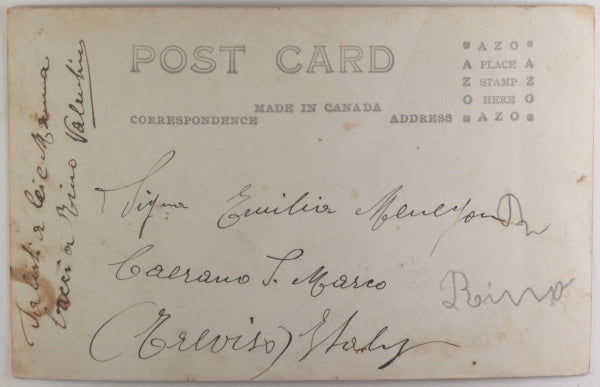 POST CARD
MADE IN CANADA
CORRESPONDENCE
ADDRESS
AZO
A PLACE A
Z STAMP Z
O HERE O
AZO
Saluti a lei e Mamma
baccia Rino Valentino
Sigma Emilia
Caerano S. Marco
(Treviso) Italy
Rino